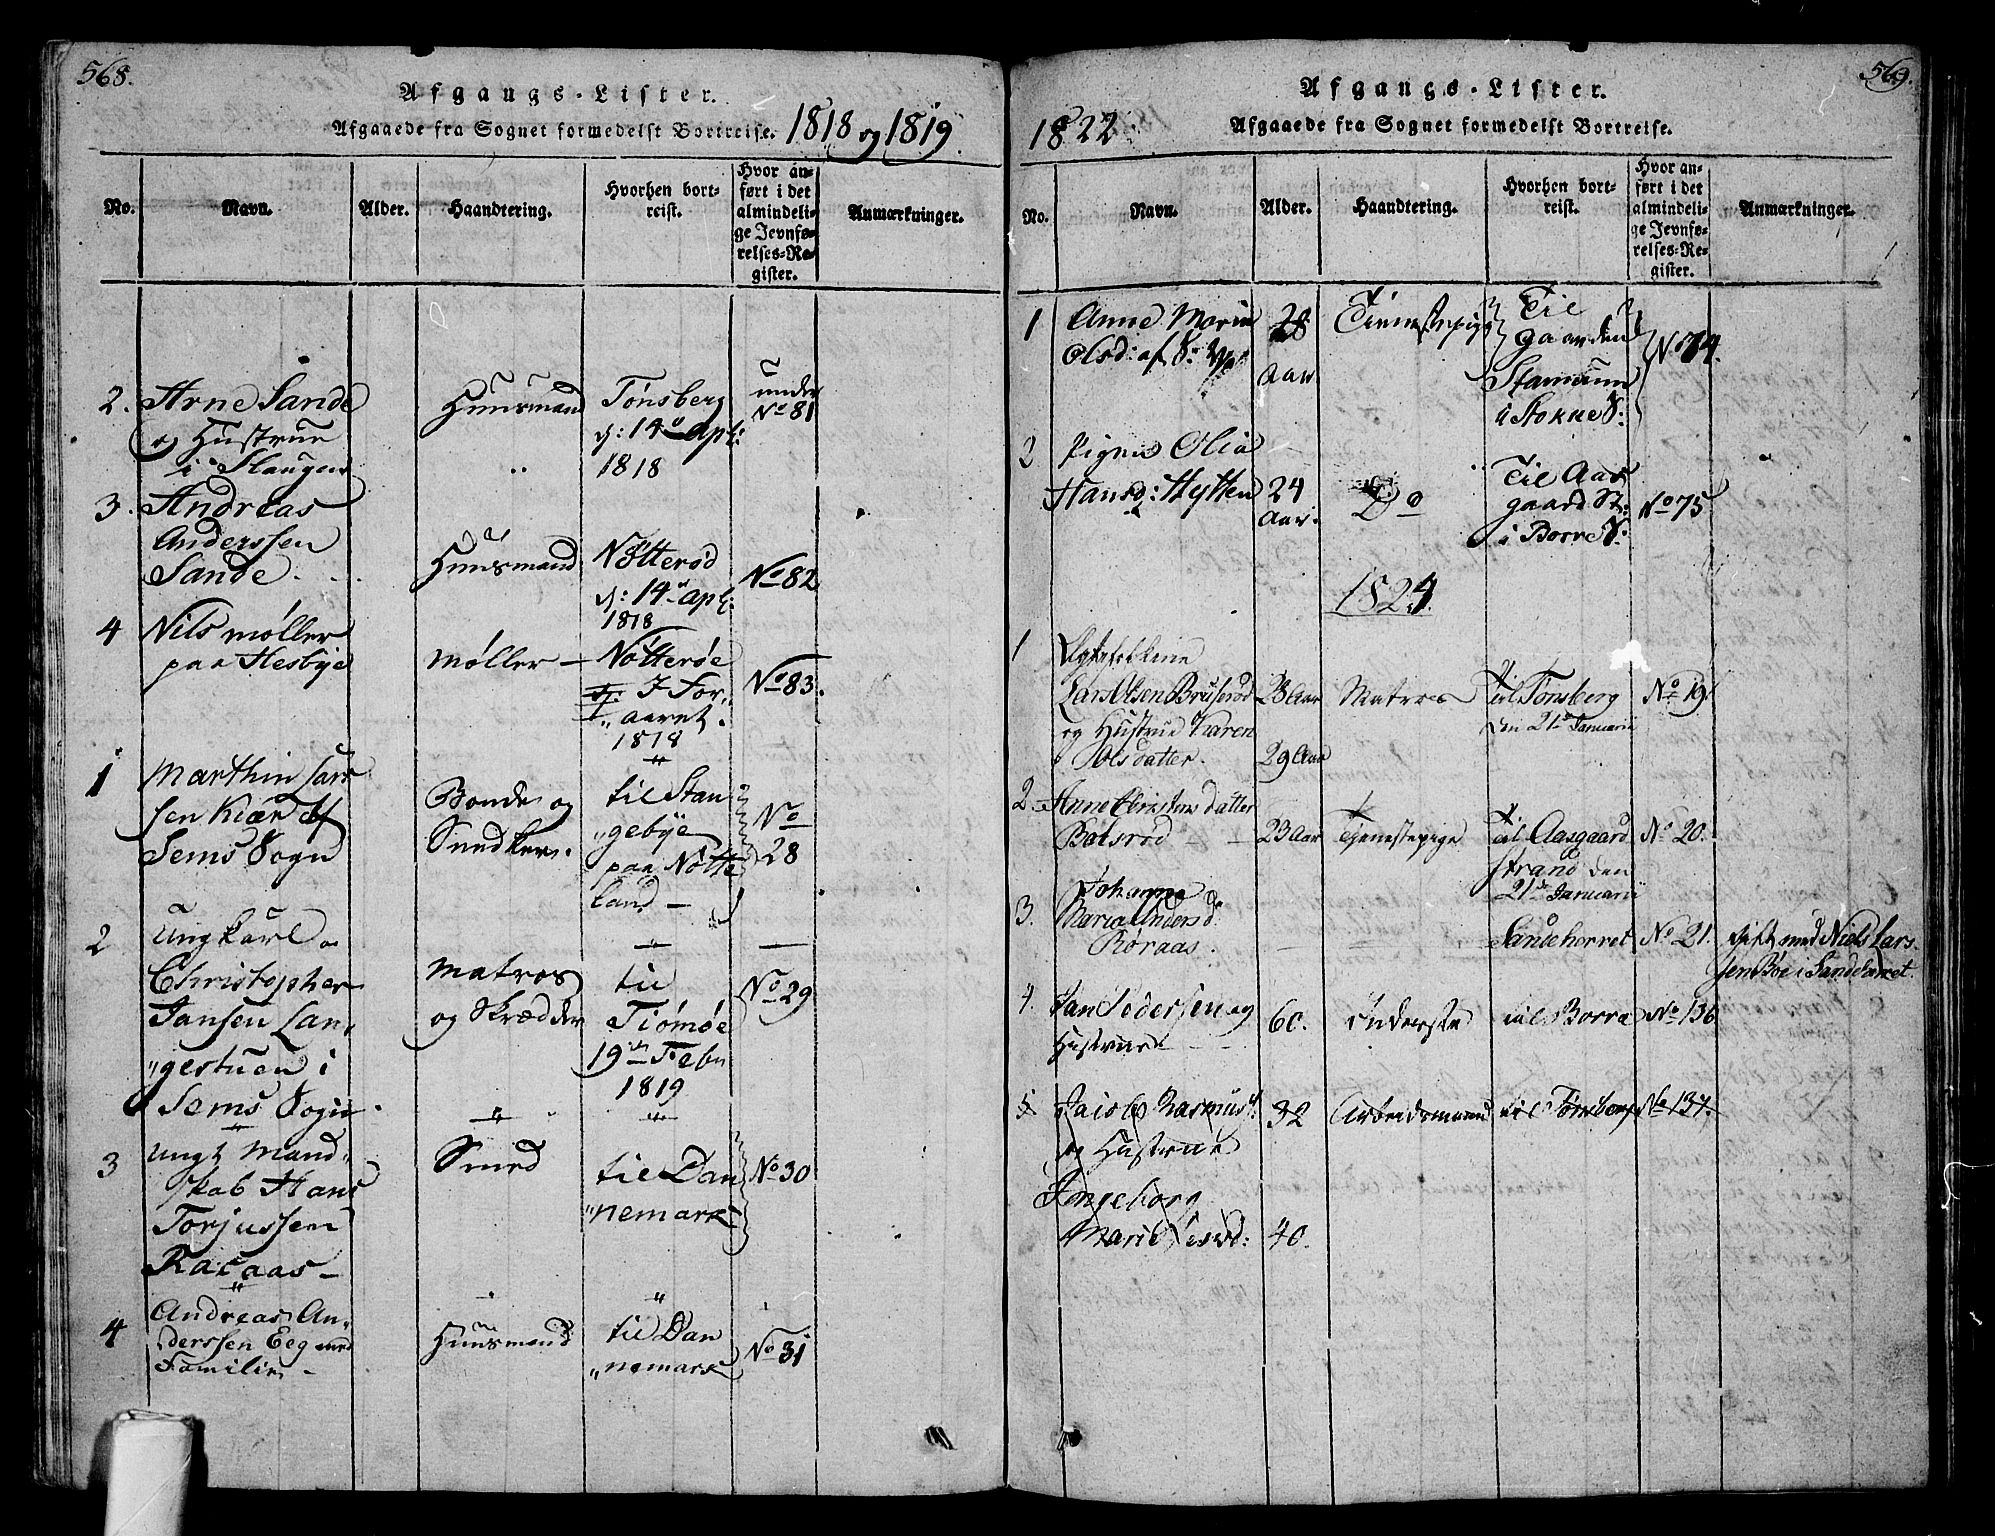 568.
Afgangs-Lister.
Afgaaede fra Sognet formedelst Bortreise. 1818 og 1819.
No. Navn. Alder. Haandtering. Hvorhen bort-
reist. Hvor an-
ført i det
almindeli-
ge Jevnfø-
relses-Re-
gister. Anmærkninger.
2. Arne Sande
og Hustrue
i Slaugen
Huusmand
Tønsberg
d: 14 Apl:
1818
under
No 81
3. Andreas
Anderssen
Sande.
Huusmand
Nøtterød
d: 14 apl:
1818
No 82
4 Nils møller
paa Hesbye
møller
Nøtterøe
I For„
„aaret.
1818
No 83.
1 Marthin Lar
sen Kiær af
Sems Sogn
Bonde og
Snedker.
til Stan
„gebye
paa Nøtte
land
No
28
2 Ungkarl
Christopher
Jansen Lan„
„gestuen i
Sems Sogn.
Matros
og Skrædder
til
Tiømøe
19 Febr
1819
No 29
3 ungt Mand„
skab Hans
Torjussen
Raraas
Smed
til Dan
„nemark
No 30
4 Andreas An„
derssen Eeg med
Familie
Huusmand
til Dan
„nemark
No 31
569.
Afgangs-Lister.
1822 Afgaaede fra Sognet formedelst Bortreise.
No. Navn. Alder. Haandtering. Hvorhen bort-
reist. Hvor an-
ført i det
almindeli-
ge Jevnfø-
relses-Re-
gister. Anmærkninger.
1 Anne Maria
Olsd: af
28
Aar
Tienestepige
Til
gaarden
Stamnum
i Stokke S:
No 74.
2 Pigen Olia
Hansd: Hytten
24
Aar.
Do
Til Aas
gaard St:
i Borre S:
No 75
1824.
1 Ægtefolkene
Lars Olsen Bruserød
og Hustrue Karen
Olsdatter.
28 Aar
29 Aar
Matros
til Tønsberg
den 21 Januarii
No 19.
2. Anne Christensdatter
Bolsrød
23 Aar
Tjenestepige
til Aasgaard
strand den
21 Januarii
No 20.
3. Johanne
Maria Andersd
Røraas.
Sandeherret
No 21.
gift med Niels Lars
sen Bøe i Sandeherret.
4. Jan Pedersen og
Hustrue
60.
Inderste
til Borre
No 136
5 Jacob Rasmuss.
og Hustrue
Ingeborg
Marie
32
40.
Arbeidsmand
til Tønsberg
No 137.